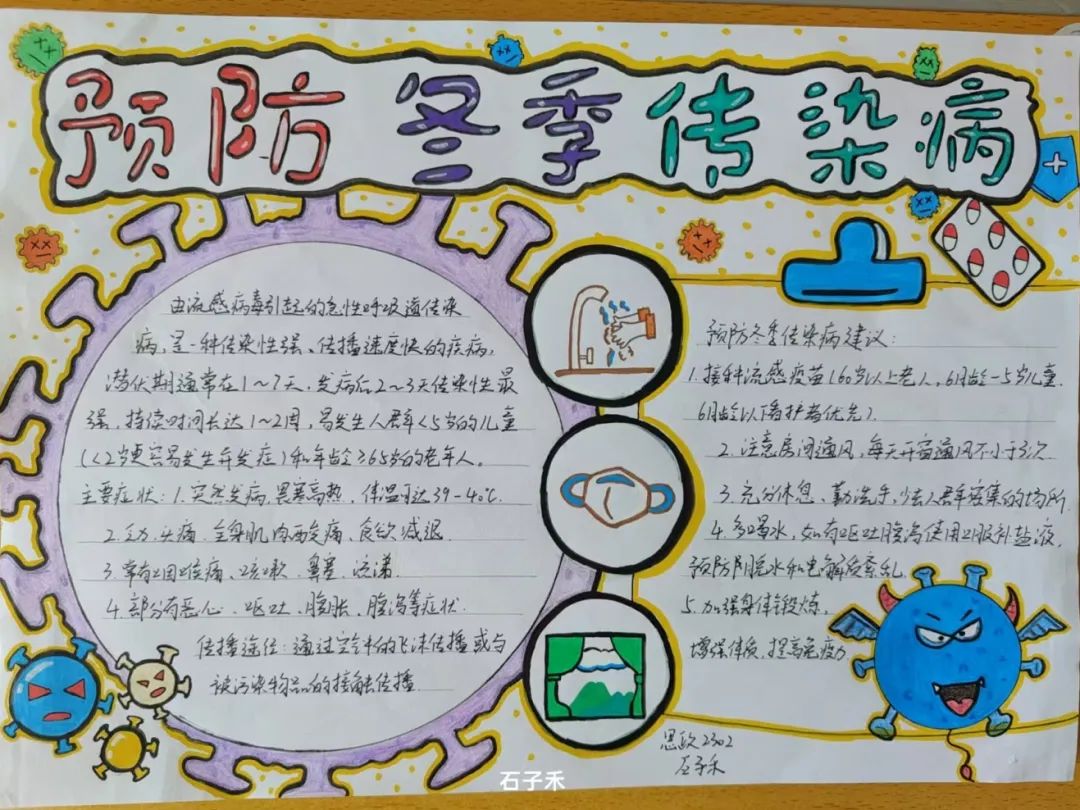 预防冬季传染病
由流感病毒引起的急性呼吸道传染
病,是一种传染性强、传播速度快的疾病,
潜伏期通常在1~7天,发病后2~3天传染性最
强,持续时间长达1~2周,易发生人群<5岁的儿童
(<2岁更容易发生并发症)和年龄≥65岁的老年人。
主要症状:1.突然发病,畏寒高热,体温可达39-40℃.
2.乏力.头痛.全身肌肉酸痛、食欲减退.
3.常有咽喉痛、咳嗽、鼻塞、流涕.
4.部分有恶心、呕吐、腹胀、腹泻等症状.
传播途径:通过空气中的飞沫传播或与
被污染物品的接触传播.
预防冬季传染病建议:
1.接种流感疫苗(60岁以上老人,6月龄-5岁儿童.
6月龄以下看护者优先).
2.注意房间通风,每天开窗通风不小于3次
3.充分休息、勤洗手,少去人群密集的场所
4.多喝水,如有呕吐腹泻使用口服补盐液,
预防脱水和电解质紊乱
5.加强身体锻炼,
增强体质,提高免疫力
思政2302
石子禾
石子禾